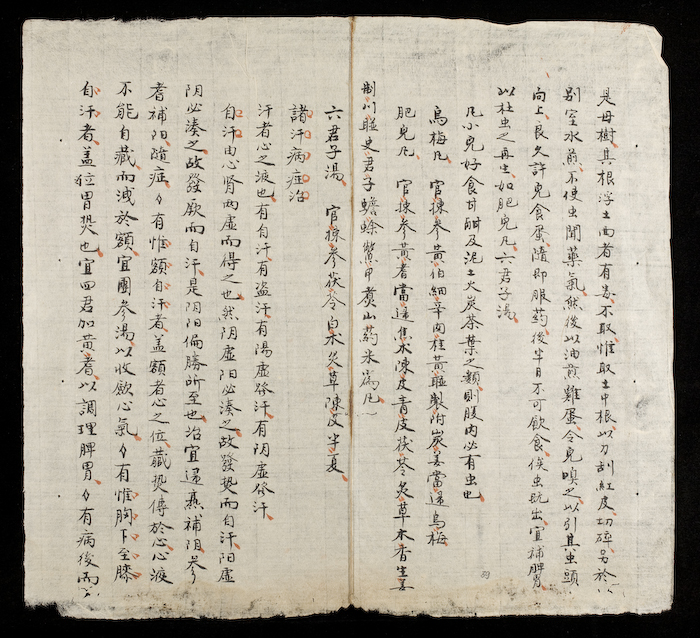 是母樹其根浮土面者有毒不取惟取土中根以刀刮紅皮切碎另於
別室水煎不使虫聞藥氣然後以油煎雞蛋令兒嗅之以引其虫頭
向上良久許兒食蛋隨即服药後半日不可飲食俟虫既出宜補脾胃
以杜虫之再生如肥兒凡六君子湯
凡小兒好食甘甜及泥土火炭茶葉之類則腹內必有虫也
烏梅凡 官揀參黃伯細辛肉桂黃連製附炭姜當歸烏梅
肥兒凡 官揀參黃耆當歸焦朮陳皮青皮茯苓炙草木香生姜
製川連史君子蟾蜍鱉甲煮山药米為凡
六君子湯 官揀參茯苓白朮炙草陳皮半夏
諸汗病症治
汗者心之液也有自汗有盜汗有陽虛發汗有阴虛發汗
自汗由心肾兩虛而得之也然阴虛阳必湊之故發熱而自汗阳虛
阴必湊之故發厥而自汗是阴阳偏勝所至也治宜歸蓍補阴參
耆補阳隨症々有惟額自汗者盖額者心之位藏热傅於心心液
不能自藏而洩於額宜團參湯以收歛心氣々有惟胸下至膝
自汗者盖胃热也宜四君加黃耆以調理脾胃々有病後而